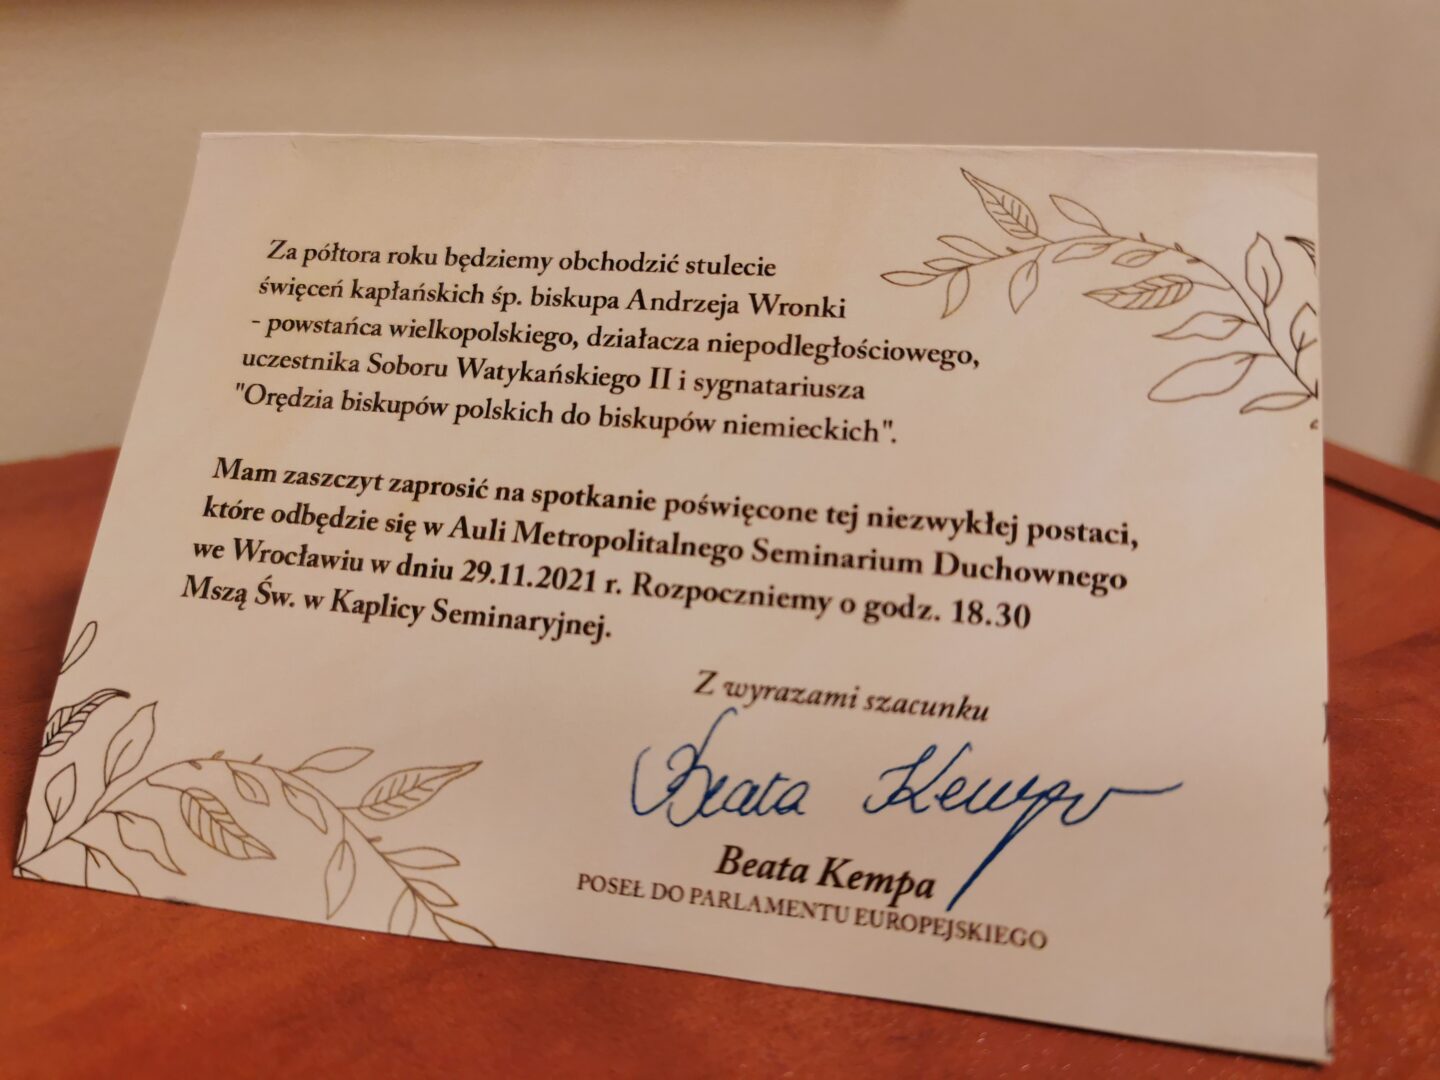 Za półtora roku będziemy obchodzić stulecie
święceń kapłańskich śp. biskupa Andrzeja Wronki
- powstańca wielkopolskiego, działacza niepodległościowego,
uczestnika Soboru Watykańskiego II i sygnatariusza
"Orędzia biskupów polskich do biskupów niemieckich".
Mam zaszczyt zaprosić na spotkanie poświęcone tej niezwykłej postaci,
które odbędzie się w Auli Metropolitalnego Seminarium Duchownego
we Wrocławiu w dniu 29.11.2021 r. Rozpoczniemy o godz. 18.30
Mszą Św. w Kaplicy Seminaryjnej.
Z wyrazami szacunku
Beata Kempa
Beata Kempa
POSEŁ DO PARLAMENTU EUROPEJSKIEGO